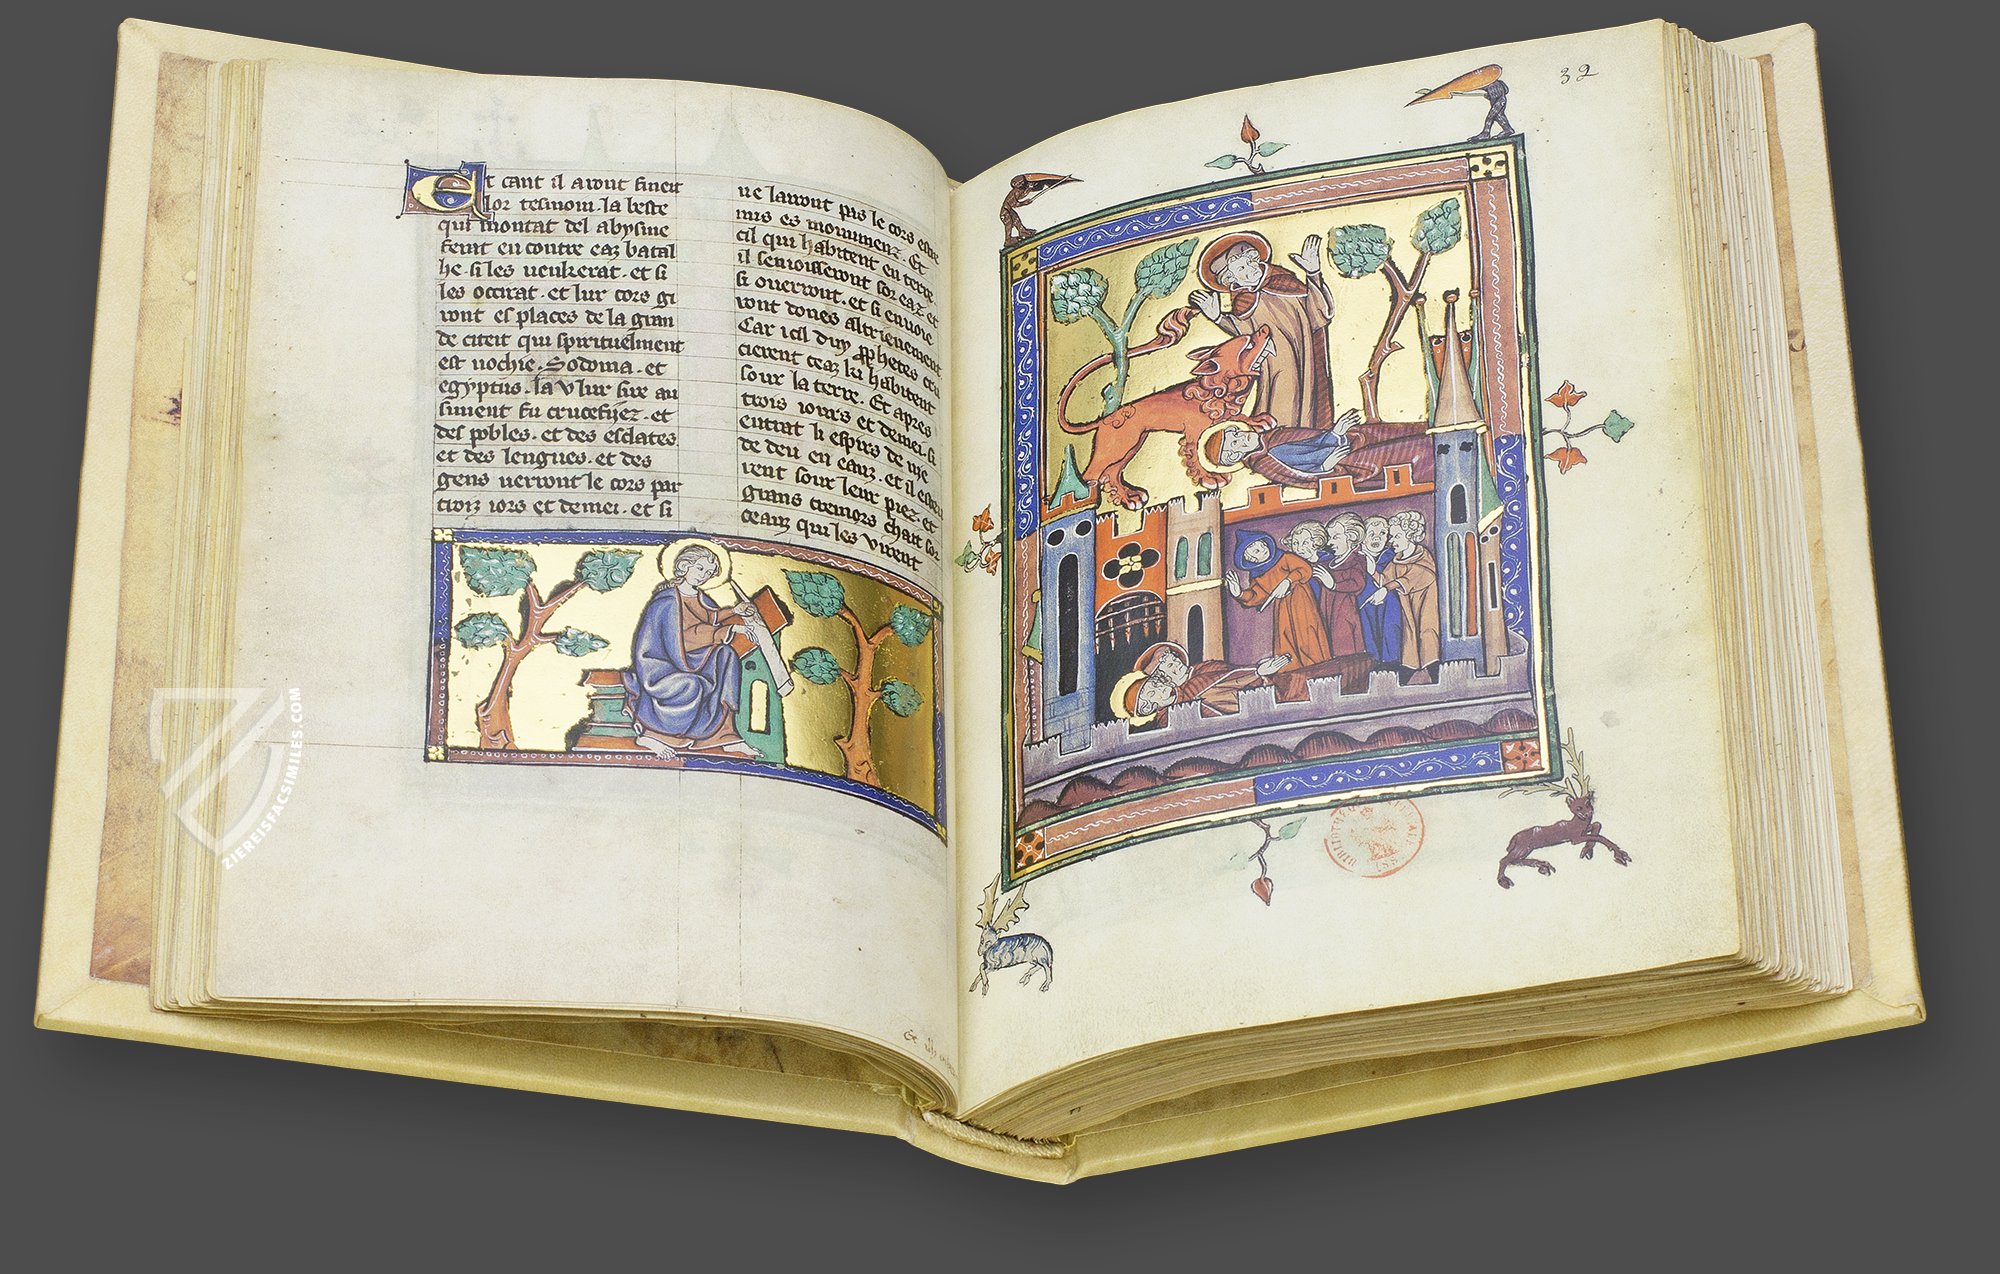 Et cant il auront fineit
lor tesmoni. la beste
qui montat del abysme
ferat en contre eaz batal
he. si les uenkerat. et si
les occirat. et lur cors gi
ront es places de la gran
de citeit qui spirituelment
est uochie. Sodoma. et
egyptus. la v lur sire au
siment fu crucefijez. et
des pobles. et des esclates.
et des lengues. et des
gens uerront le cors par
troiz iors et demei. et si
ne lairont pas le cors estre
mis es monumenz. Et
cil qui habitent en terre.
il senioisseront sor eaz. et
si ouerront. et si enuoie
ront dones altrienement
Car icil duy prophetes
cierent ceaz ki habitent
sour la terre. Et apres
trois iours et demei. si
entrat li espirs de uie
de deu en eauz. et il
rent sour leur piez. et
grans cremors chait sor
ceauz qui les virent
32
BIBLIOTHE
ZIEREISFACSIMILES.COM